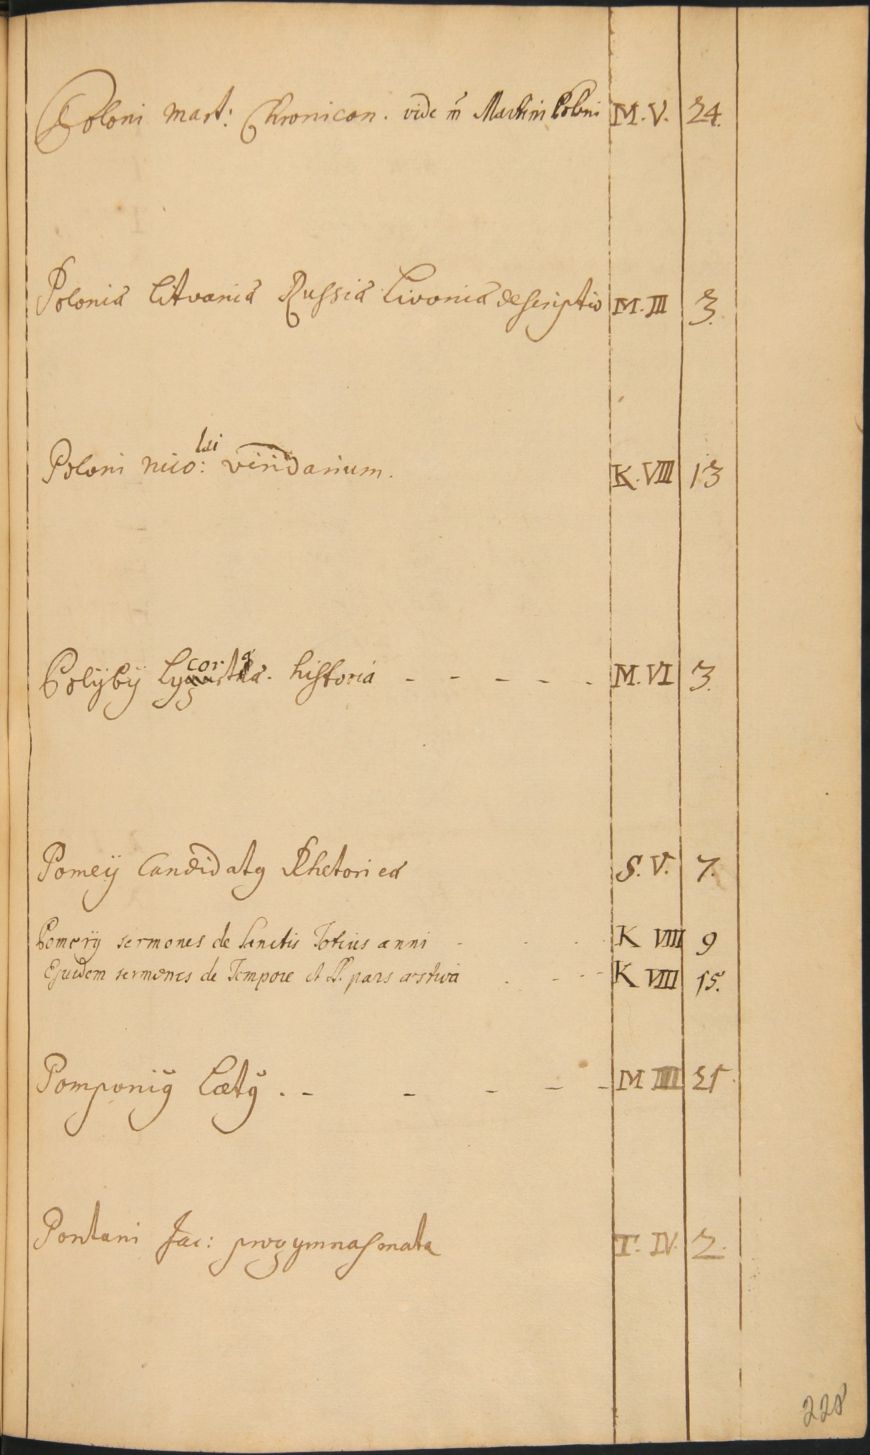 Poloni Mart: Chronicon. vide in Martini Poloni M.V. 24.
Poloniæ Litvaniæ Russiæ Livoniæ descriptio M.III 3.
Poloni nico:lai viridarium. K.VIII 13
Polÿbÿ Lycortæ. historia - - - - - M.VI 3.
Pomeÿ Candidatg Rhetoricæ S.V. 7.
Pomerÿ sermones de Sanctis Totius anni K VIII 9
Ejusdem sermones de Tempore et P. pars æstiva K VIII 15.
Pomponiÿ Lætÿ . - - - - - M IIII 21.
Pontani Jac: progymnasmata T. IV. 2.
228